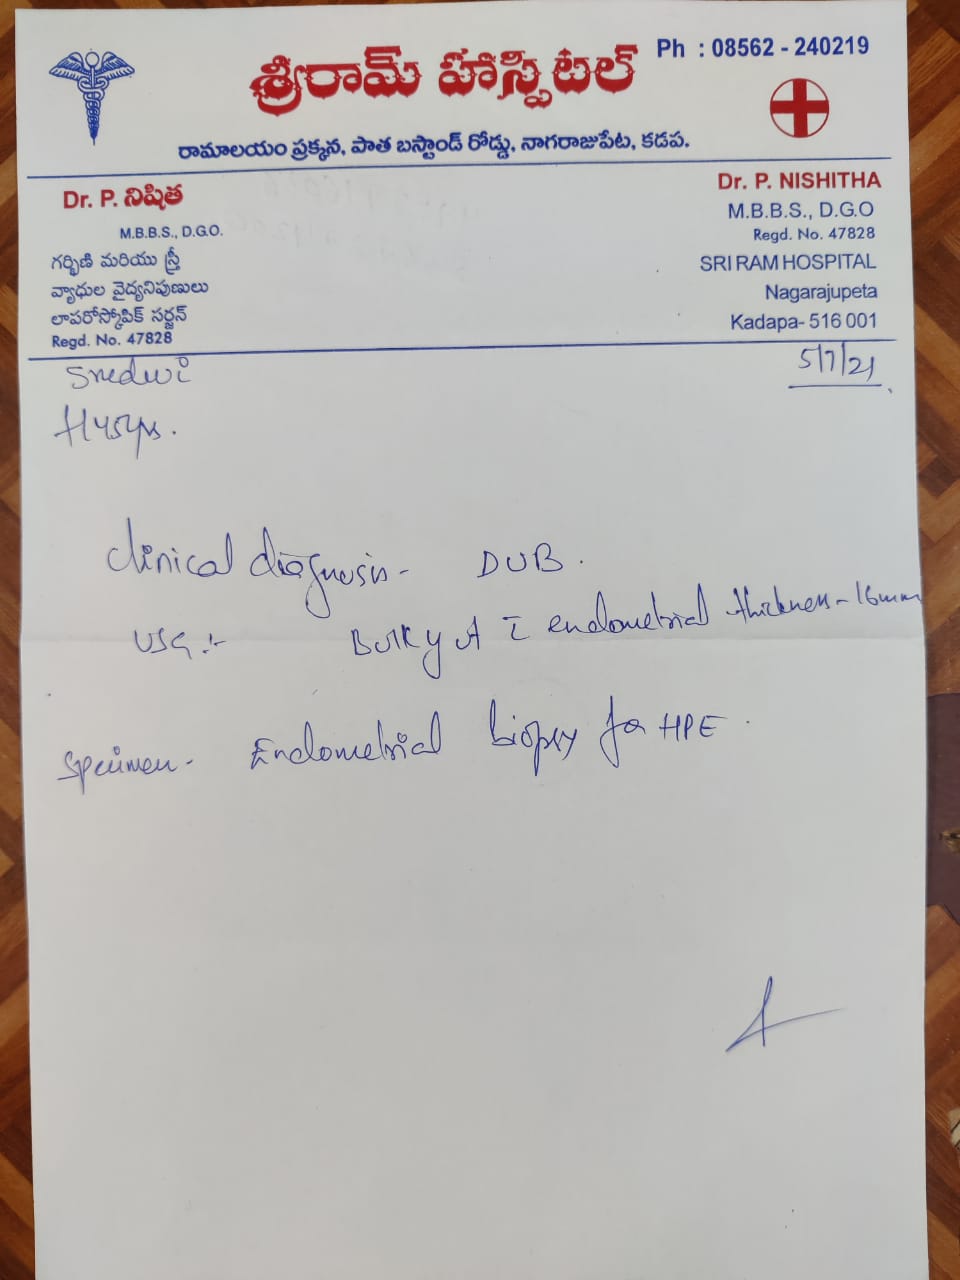 శ్రీరామ్ హాస్పిటల్
Ph : 08562 - 240219
రామాలయం ప్రక్కన, పాత బస్టాండ్ రోడ్డు, నాగరాజుపేట, కడప.
Dr. P. నిషిత
M.B.B.S., D.G.O.
గర్భిణి మరియు స్త్రీ
వ్యాధుల వైద్యనిపుణులు
లాపరోస్కోపిక్ సర్జన్
Regd. No. 47828
Dr. P. NISHITHA
M.B.B.S., D.G.O
Regd. No. 47828
SRI RAM HOSPITAL
Nagarajupeta
Kadapa- 516 001
5/7/21
Clinical diagnosis - DUB.
USG :- Bulky ut c̄ endometrial thickness - 16mm
Specimen - Endometrial biopsy for HPE.